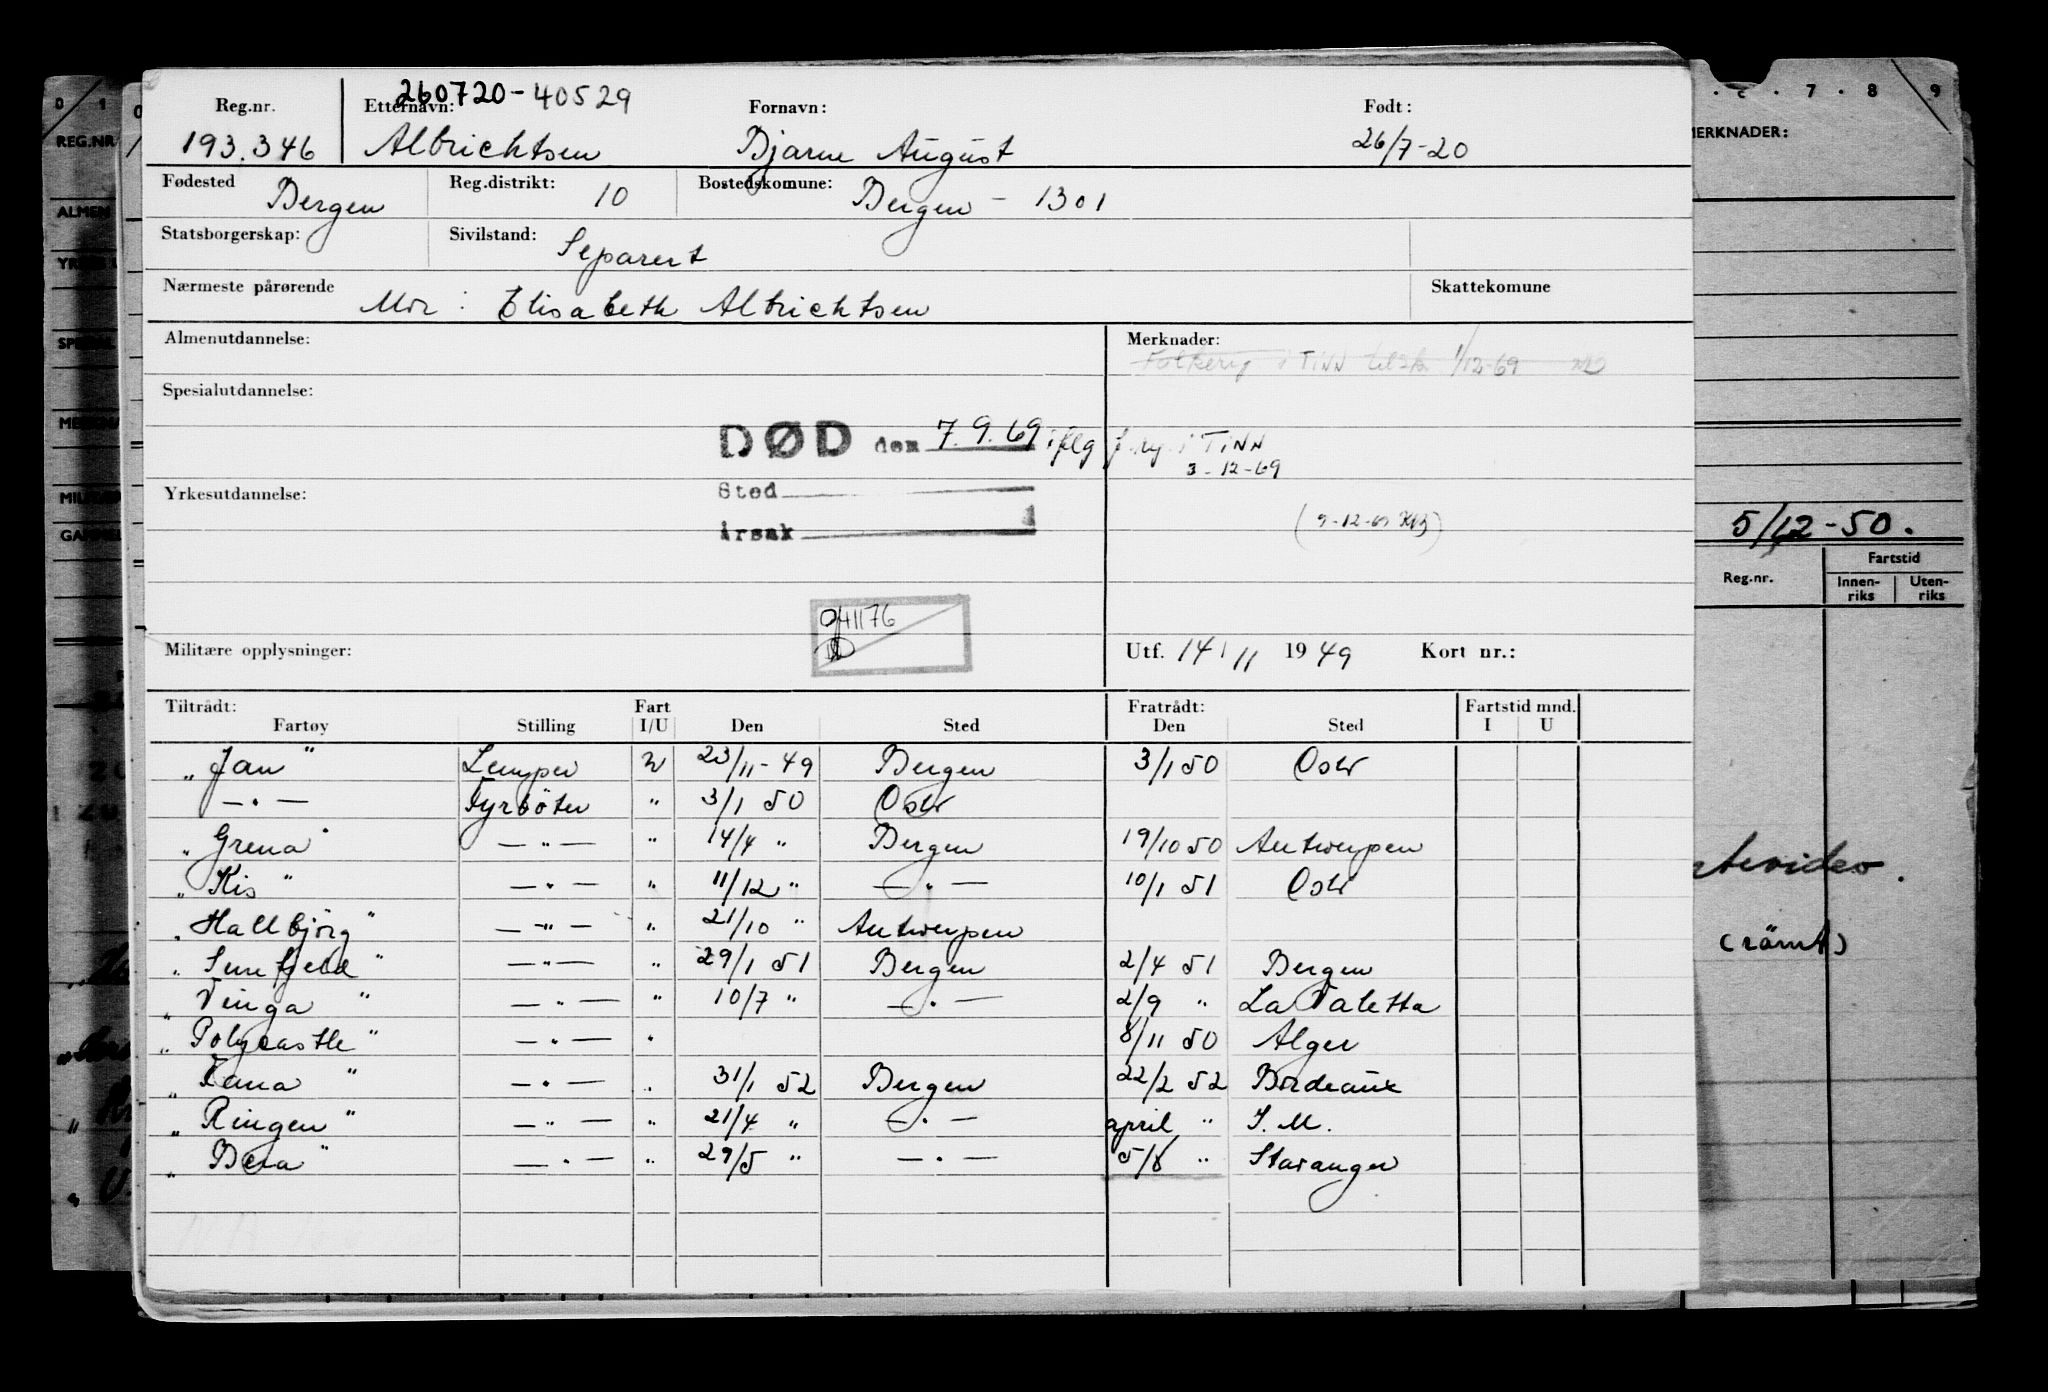 260720-40529
Reg.nr. Etternavn: Fornavn: Født:
193.346 Albrichtsen Bjarne August 26/7-20
Fødested Bergen Reg.distrikt: 10 Bostedskomune: Bergen - 1301
Statsborgerskap: Sivilstand: Separert
Nærmeste pårørende Mor: Elisabeth Albrichtsen Skattekomune
Almenutdannelse: Merknader:
i TINN 1/12-69
Spesialutdannelse:
DØD den 7.9.69 iflg f.reg. i TINN
3-12-69
Yrkesutdannelse: Sted
årsak
941176
Militære opplysninger: Utf. 14/11 1949 Kort nr.:
Tiltrådt: Fart Fratrådt: Fartstid mnd.
Fartøy Stilling I/U Den Sted Den Sted I U
„Jan" Lemper U 23/11-49 Bergen 3/1 50 Oslo
—"— Fyrbøter " 3/1 50 Oslo
„Grena" —"— " 14/4 " Bergen 19/10 50 Antwerpen
„Kis" —"— " 11/12 " —"— 10/1 51 Oslo
„Hallbjörg" —"— " 21/10 " Antwerpen
„Sunfjeld" —"— " 29/1 51 Bergen 2/4 51 Bergen
„Vinga" —"— " 10/7 " —"— 2/9 " La Valetta
„Polycastle" —"— " 8/11 50 Alger
„Tana" —"— " 31/1 52 Bergen 22/2 52 Bordeaux
„Ringen" —"— " 21/4 " —"— april " I.M.
„Bera" —"— " 29/5 " —"— 5/8 " Stavanger
0 1
REG.NR
ALMEN
GAMMEL
7 8 9
MERKNADER:
5/12-50.
Reg.nr. Fartstid
Innen-riks Uten-riks
ntevideo.
(rømt)